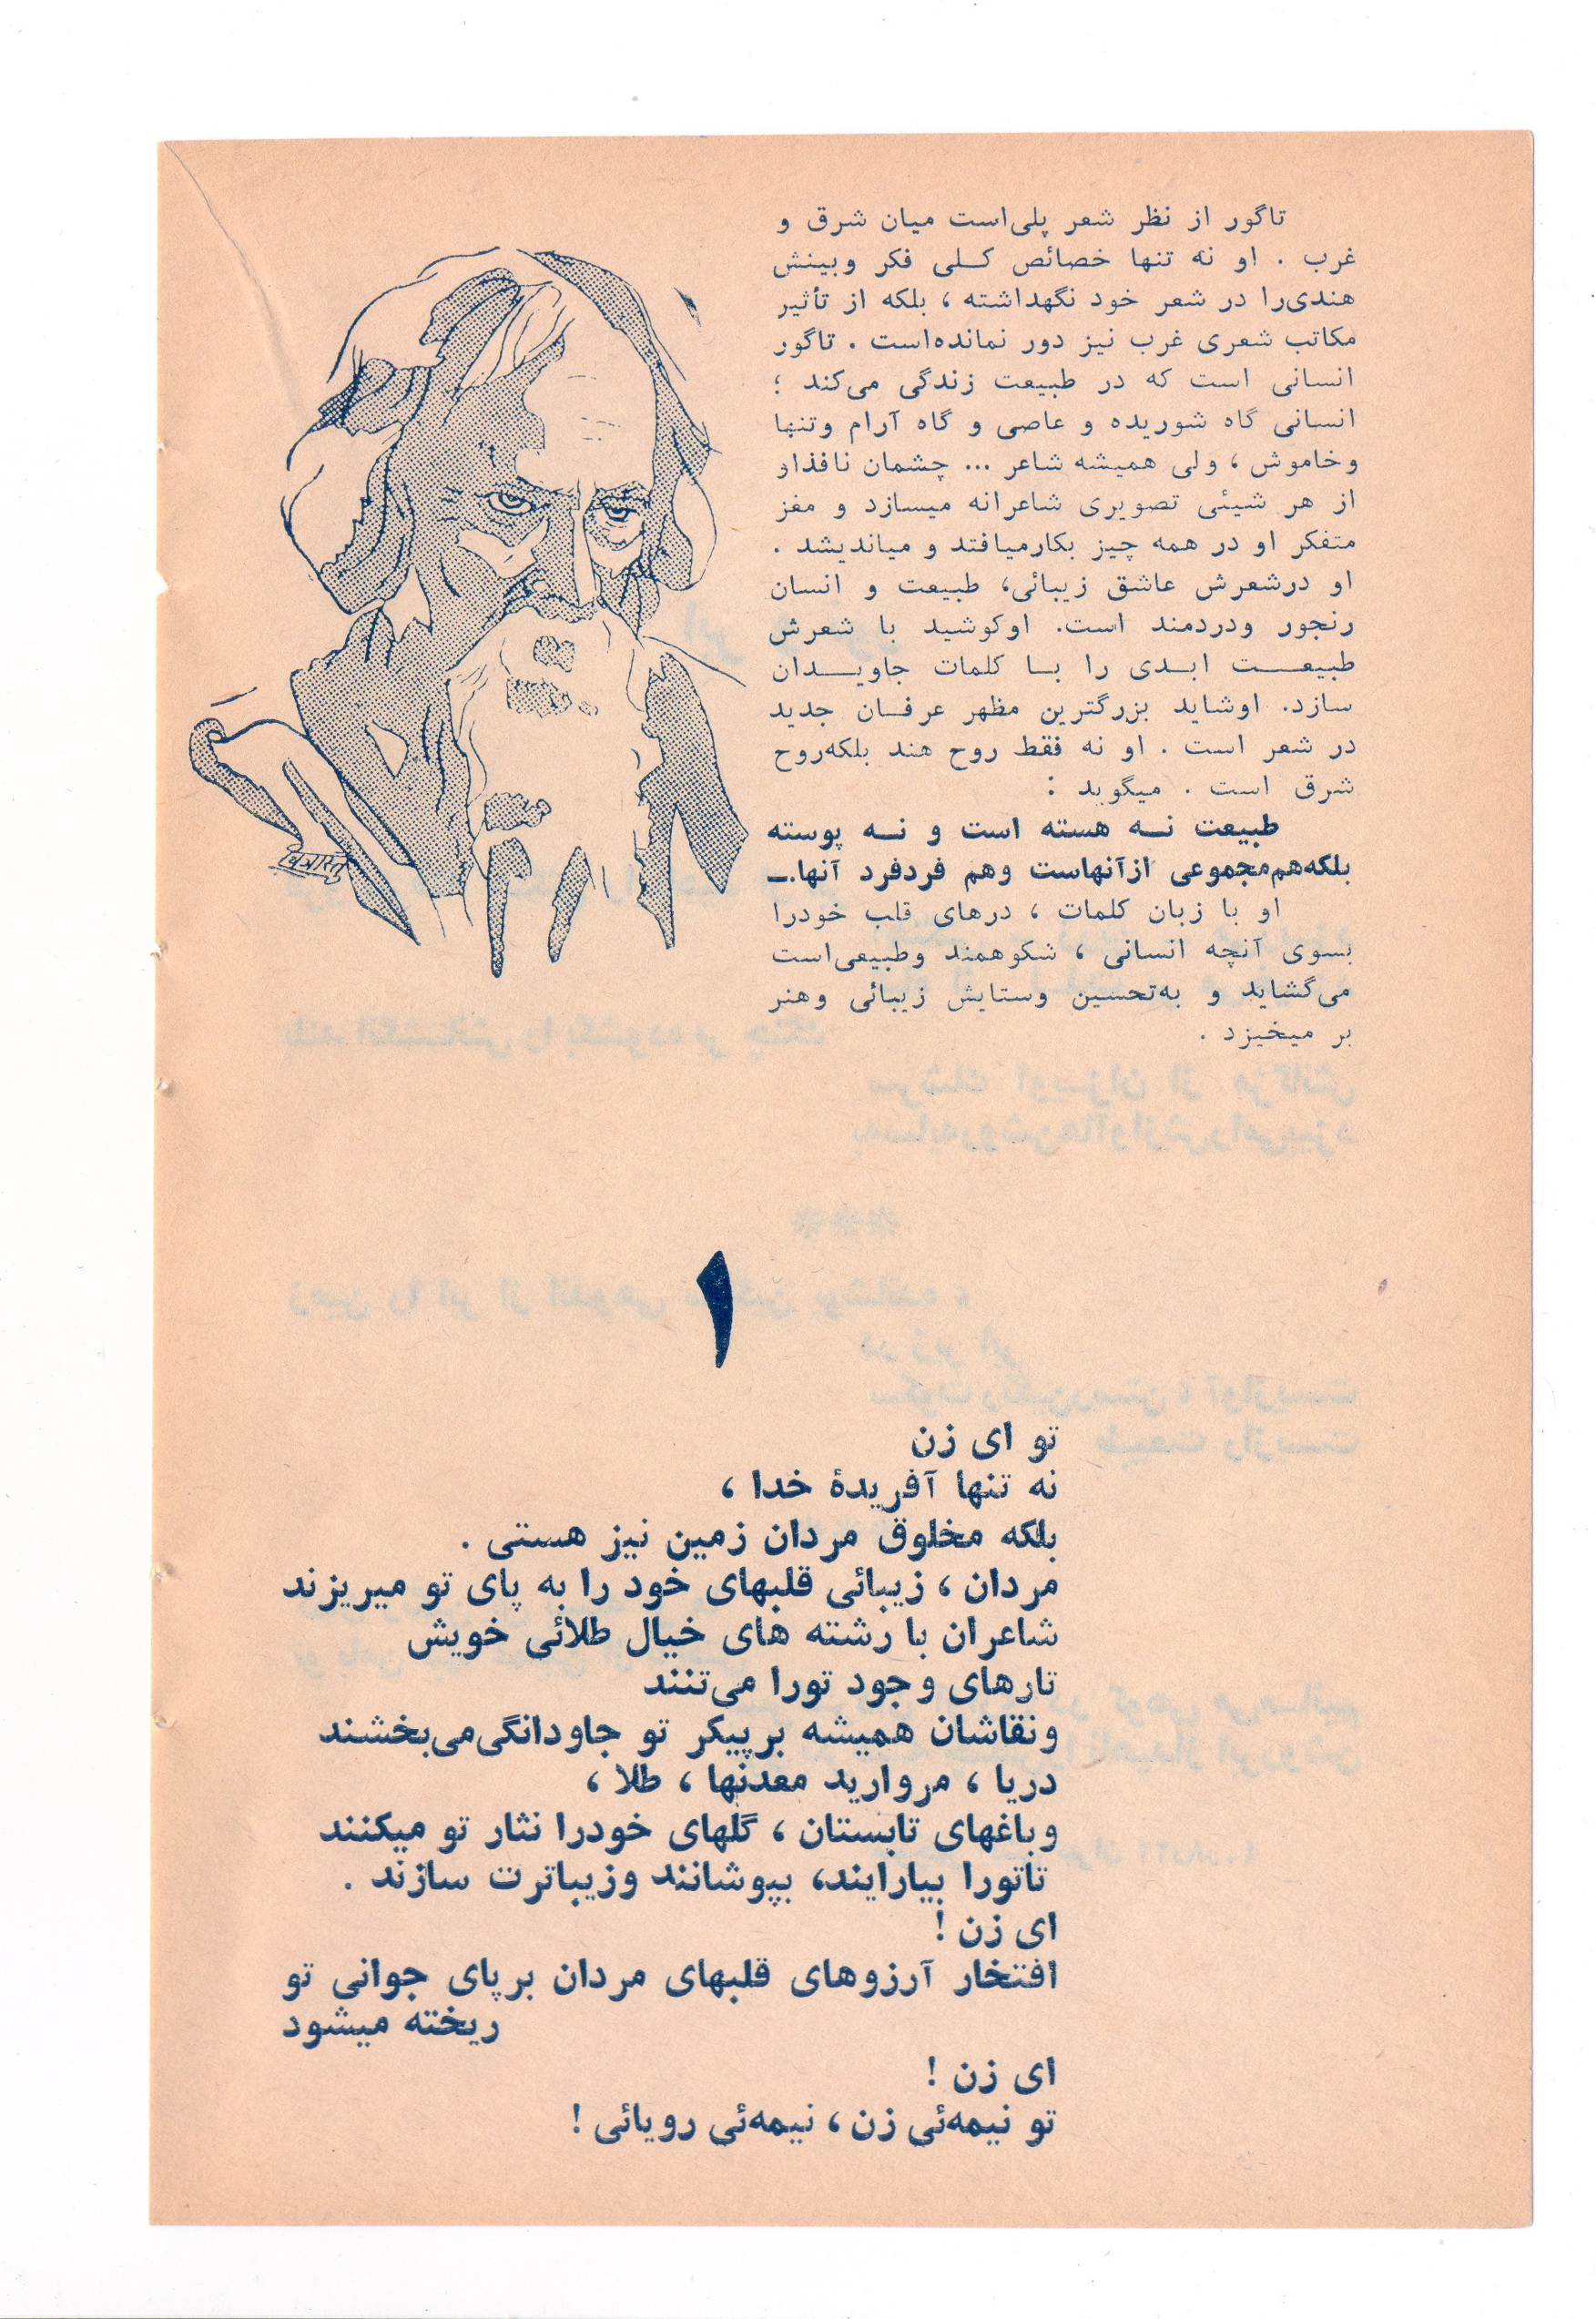 تاگور از نظر شعر پلی‌است میان شرق و
غرب . او نه تنها خصائص کـلـی فکر وبینش
هندی‌را در شعر خود نگهداشته ، بلکه از تأثیر
مکاتب شعری غرب نیز دور نمانده‌است . تاگور
انسانی است که در طبیعت زندگی می‌کند ؛
انسانی گاه شوریده و عاصی و گاه آرام وتنها
وخاموش ، ولی همیشه شاعر ... چشمان نافذاو
از هر شیئی تصویری شاعرانه میسازد و مغز
متفکر او در همه چیز بکارمیافتد و میاندیشد .
او درشعرش عاشق زیبائی، طبیعت و انسان
رنجور ودردمند است. اوکوشید با شعرش
طبیعـــت ابـدی را بـا کلمات جاویـدان
سازد. اوشاید بزرگترین مظهر عرفـان جدید
در شعر است . او نه فقط روح هند بلکه‌روح
شرق است . میگوید :
طبیعت نـه هسته است و نـه پوسته
بلکه‌هم‌مجموعی ازآنهاست وهم فردفرد آنها.ـ
او با زبان کلمات ، درهای قلب خودرا
بسوی آنچه انسانی ، شکوهمند وطبیعی‌است
می‌گشاید و به‌تحسین وستایش زیبائی وهنر
بر میخیزد .
۱
تو ای زن
نه تنها آفریدهٔ خدا ،
بلکه مخلوق مردان زمین نیز هستی .
مردان ، زیبائی قلبهای خود را به پای تو میریزند
شاعران با رشته های خیال طلائی خویش
تارهای وجود تورا می‌تنند
ونقاشان همیشه برپیکر تو جاودانگی‌می‌بخشند
دریا ، مروارید معدنها ، طلا ،
وباغهای تابستان ، گلهای خودرا نثار تو میکنند
تاتورا بیارایند، بپوشانند وزیباترت سازند .
ای زن !
افتخار آرزوهای قلبهای مردان برپای جوانی تو
ریخته میشود
ای زن !
تو نیمه‌ئی زن ، نیمه‌ئی رویائی !